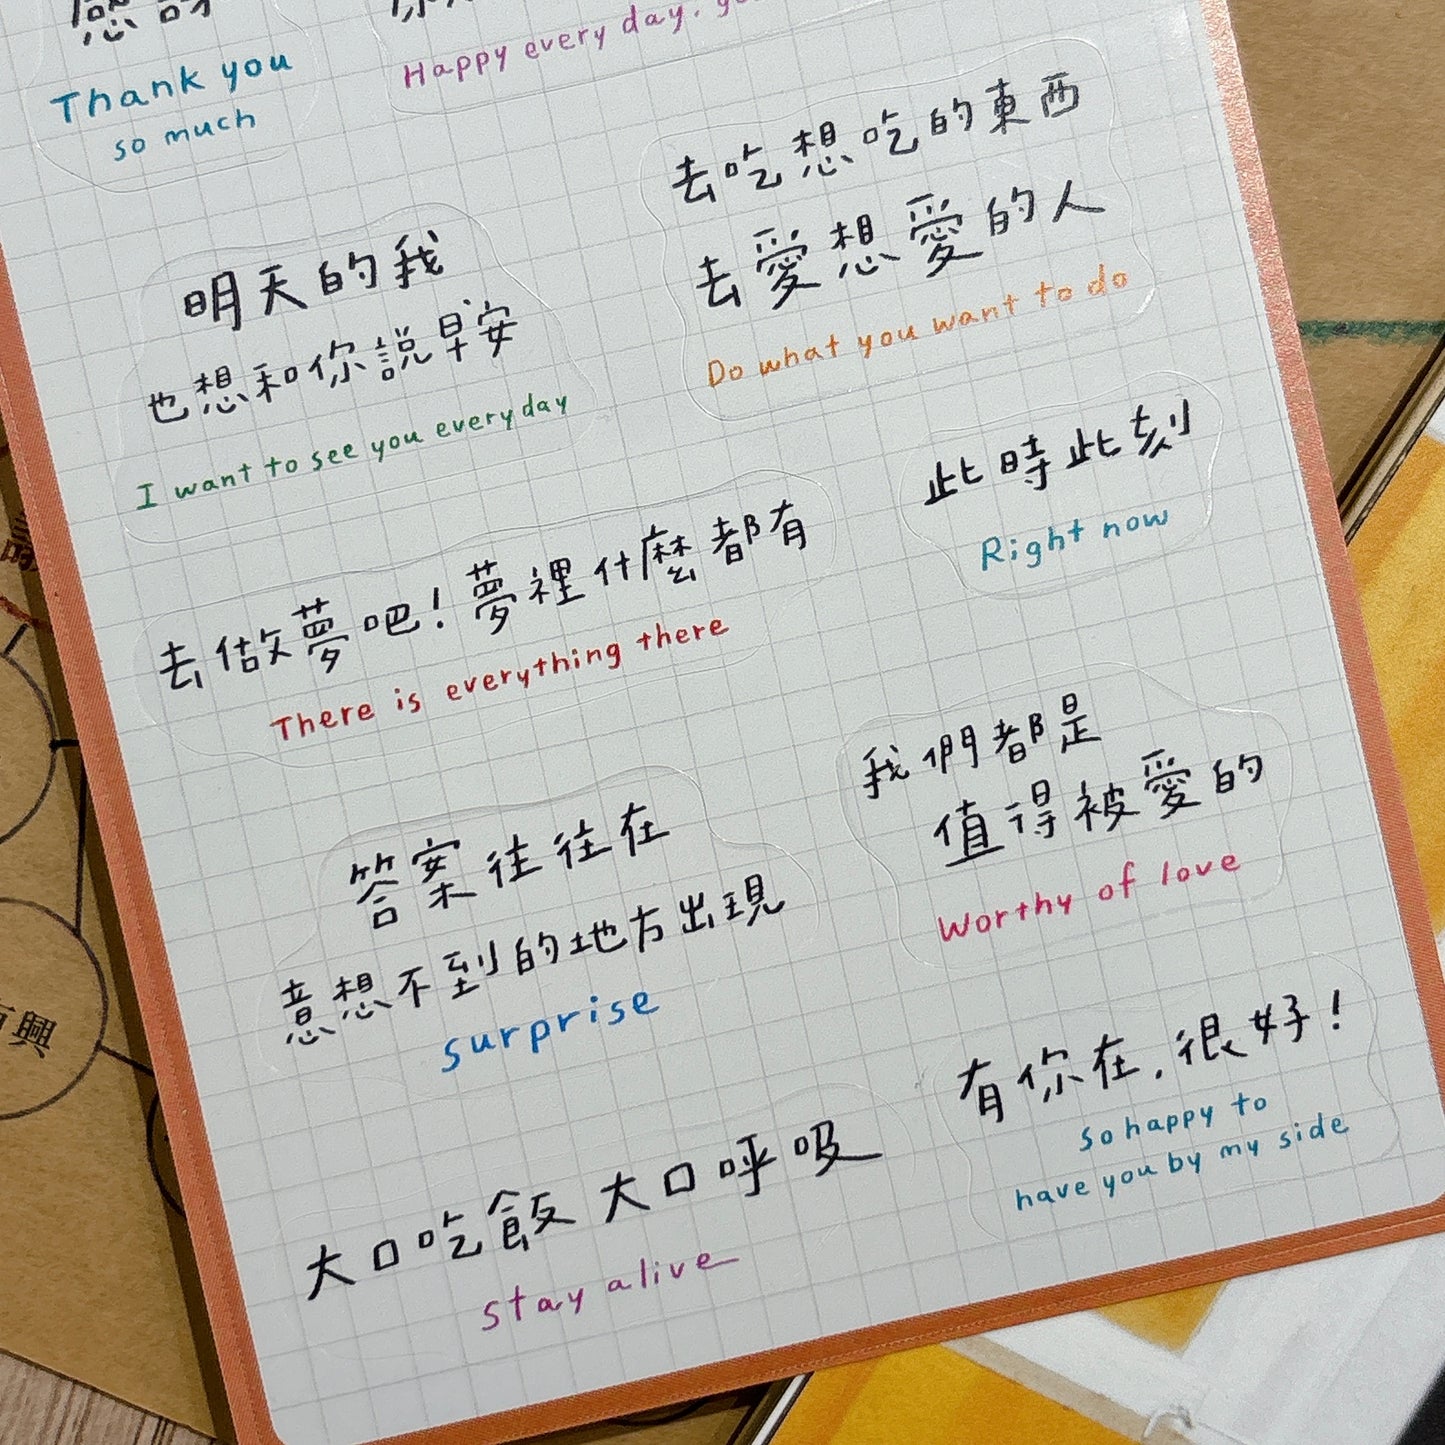 Thank you
so much
Happy every day.
去吃想吃的東西
去愛想愛的人
Do what you want to do
明天的我
也想和你說早安
I want to see you everyday
此時此刻
Right now
去做夢吧!夢裡什麼都有
There is everything there
我們都是
值得被愛的
Worthy of love
答案往往在
意想不到的地方出現
surprise
有你在,很好!
So happy to
have you by my side
大口吃飯 大口呼吸
Stay alive
興